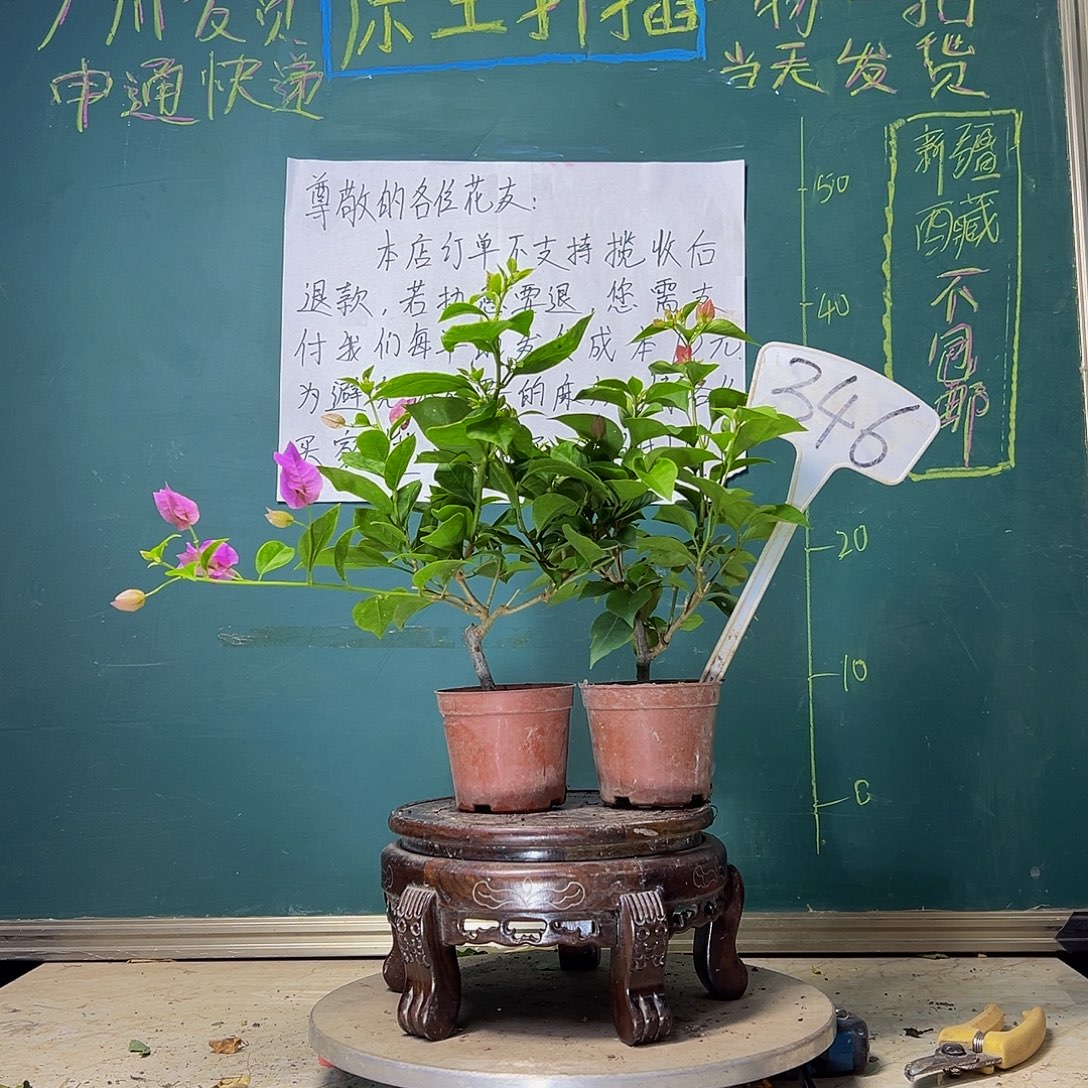 广州发货
原土扦插
一物一拍
申通快递
当天发货
尊敬的各位花友：
本店订单不支持揽收后
退款，若执意要退，您需支
付我们每单 成本 元
为避免 的麻
买家
50
40
20
10
0
新疆
西藏
不
包
邮
346